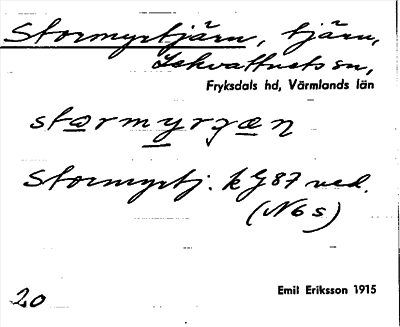 Stormyrtjärn, tjärn,
Lekvattnets sn,
Fryksdals hd, Värmlands län
stormyrɟæn
Stormyrtj. k G87 ved.
(N6s)
Emil Eriksson 1915
20